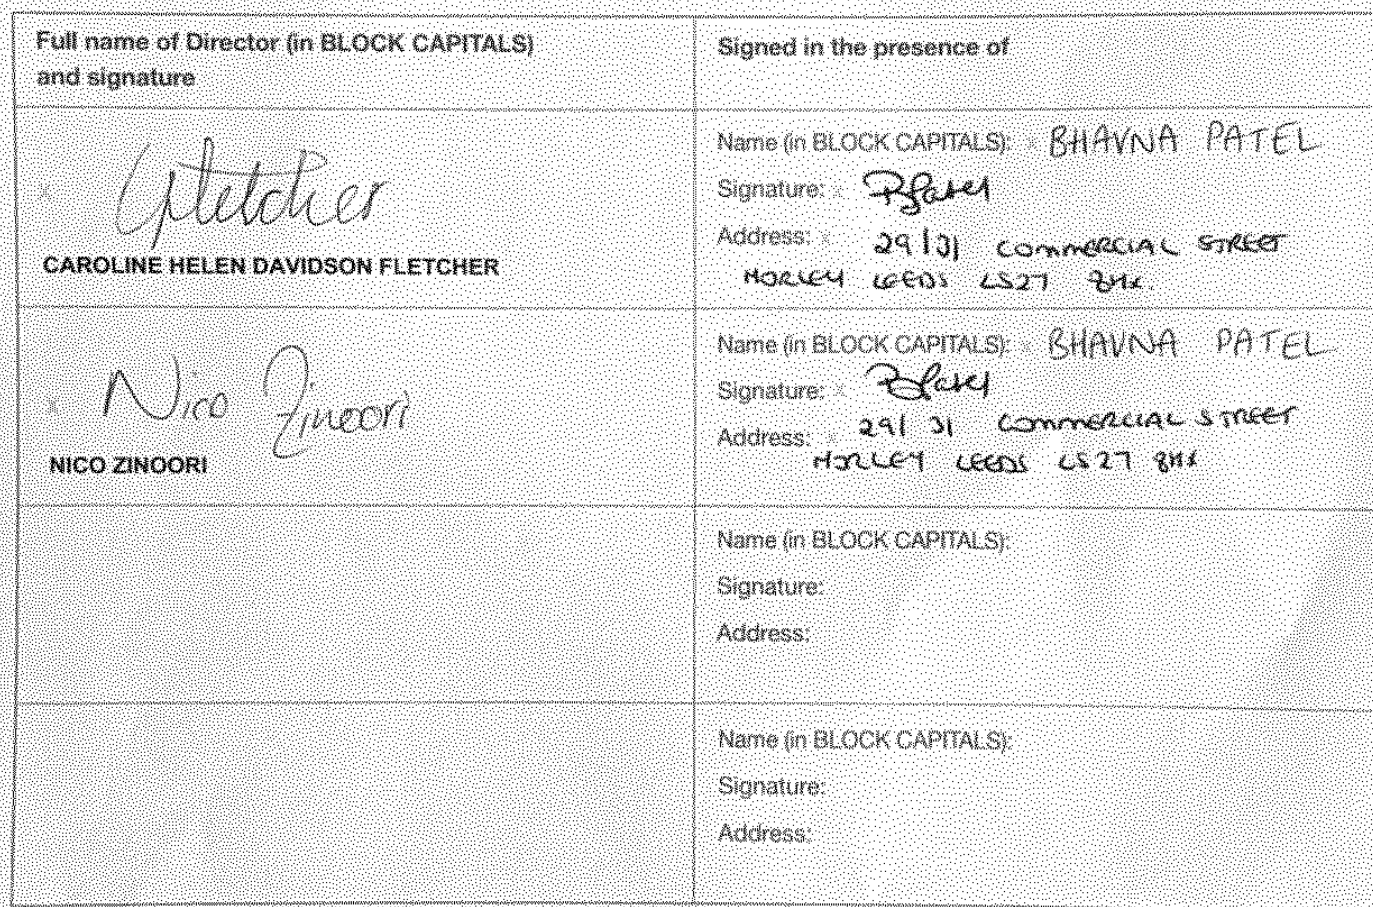 Full name of Director (in BLOCK CAPITALS)
and signature
Signed in the presence of
Fletcher
CAROLINE HELEN DAVIDSON FLETCHER
Name (in BLOCK CAPITALS): x BHAVNA PATEL
Signature: x BPatel
Address: x 29/31 COMMERCIAL STREET
MORLEY LEEDS LS27 8HX.
x Nico Zinoori
NICO ZINOORI
Name (in BLOCK CAPITALS): x BHAVNA PATEL
Signature: x BPatel
Address: x 29/31 COMMERCIAL STREET
MORLEY LEEDS LS27 8HX
Name (in BLOCK CAPITALS):
Signature:
Address:
Name (in BLOCK CAPITALS):
Signature:
Address: